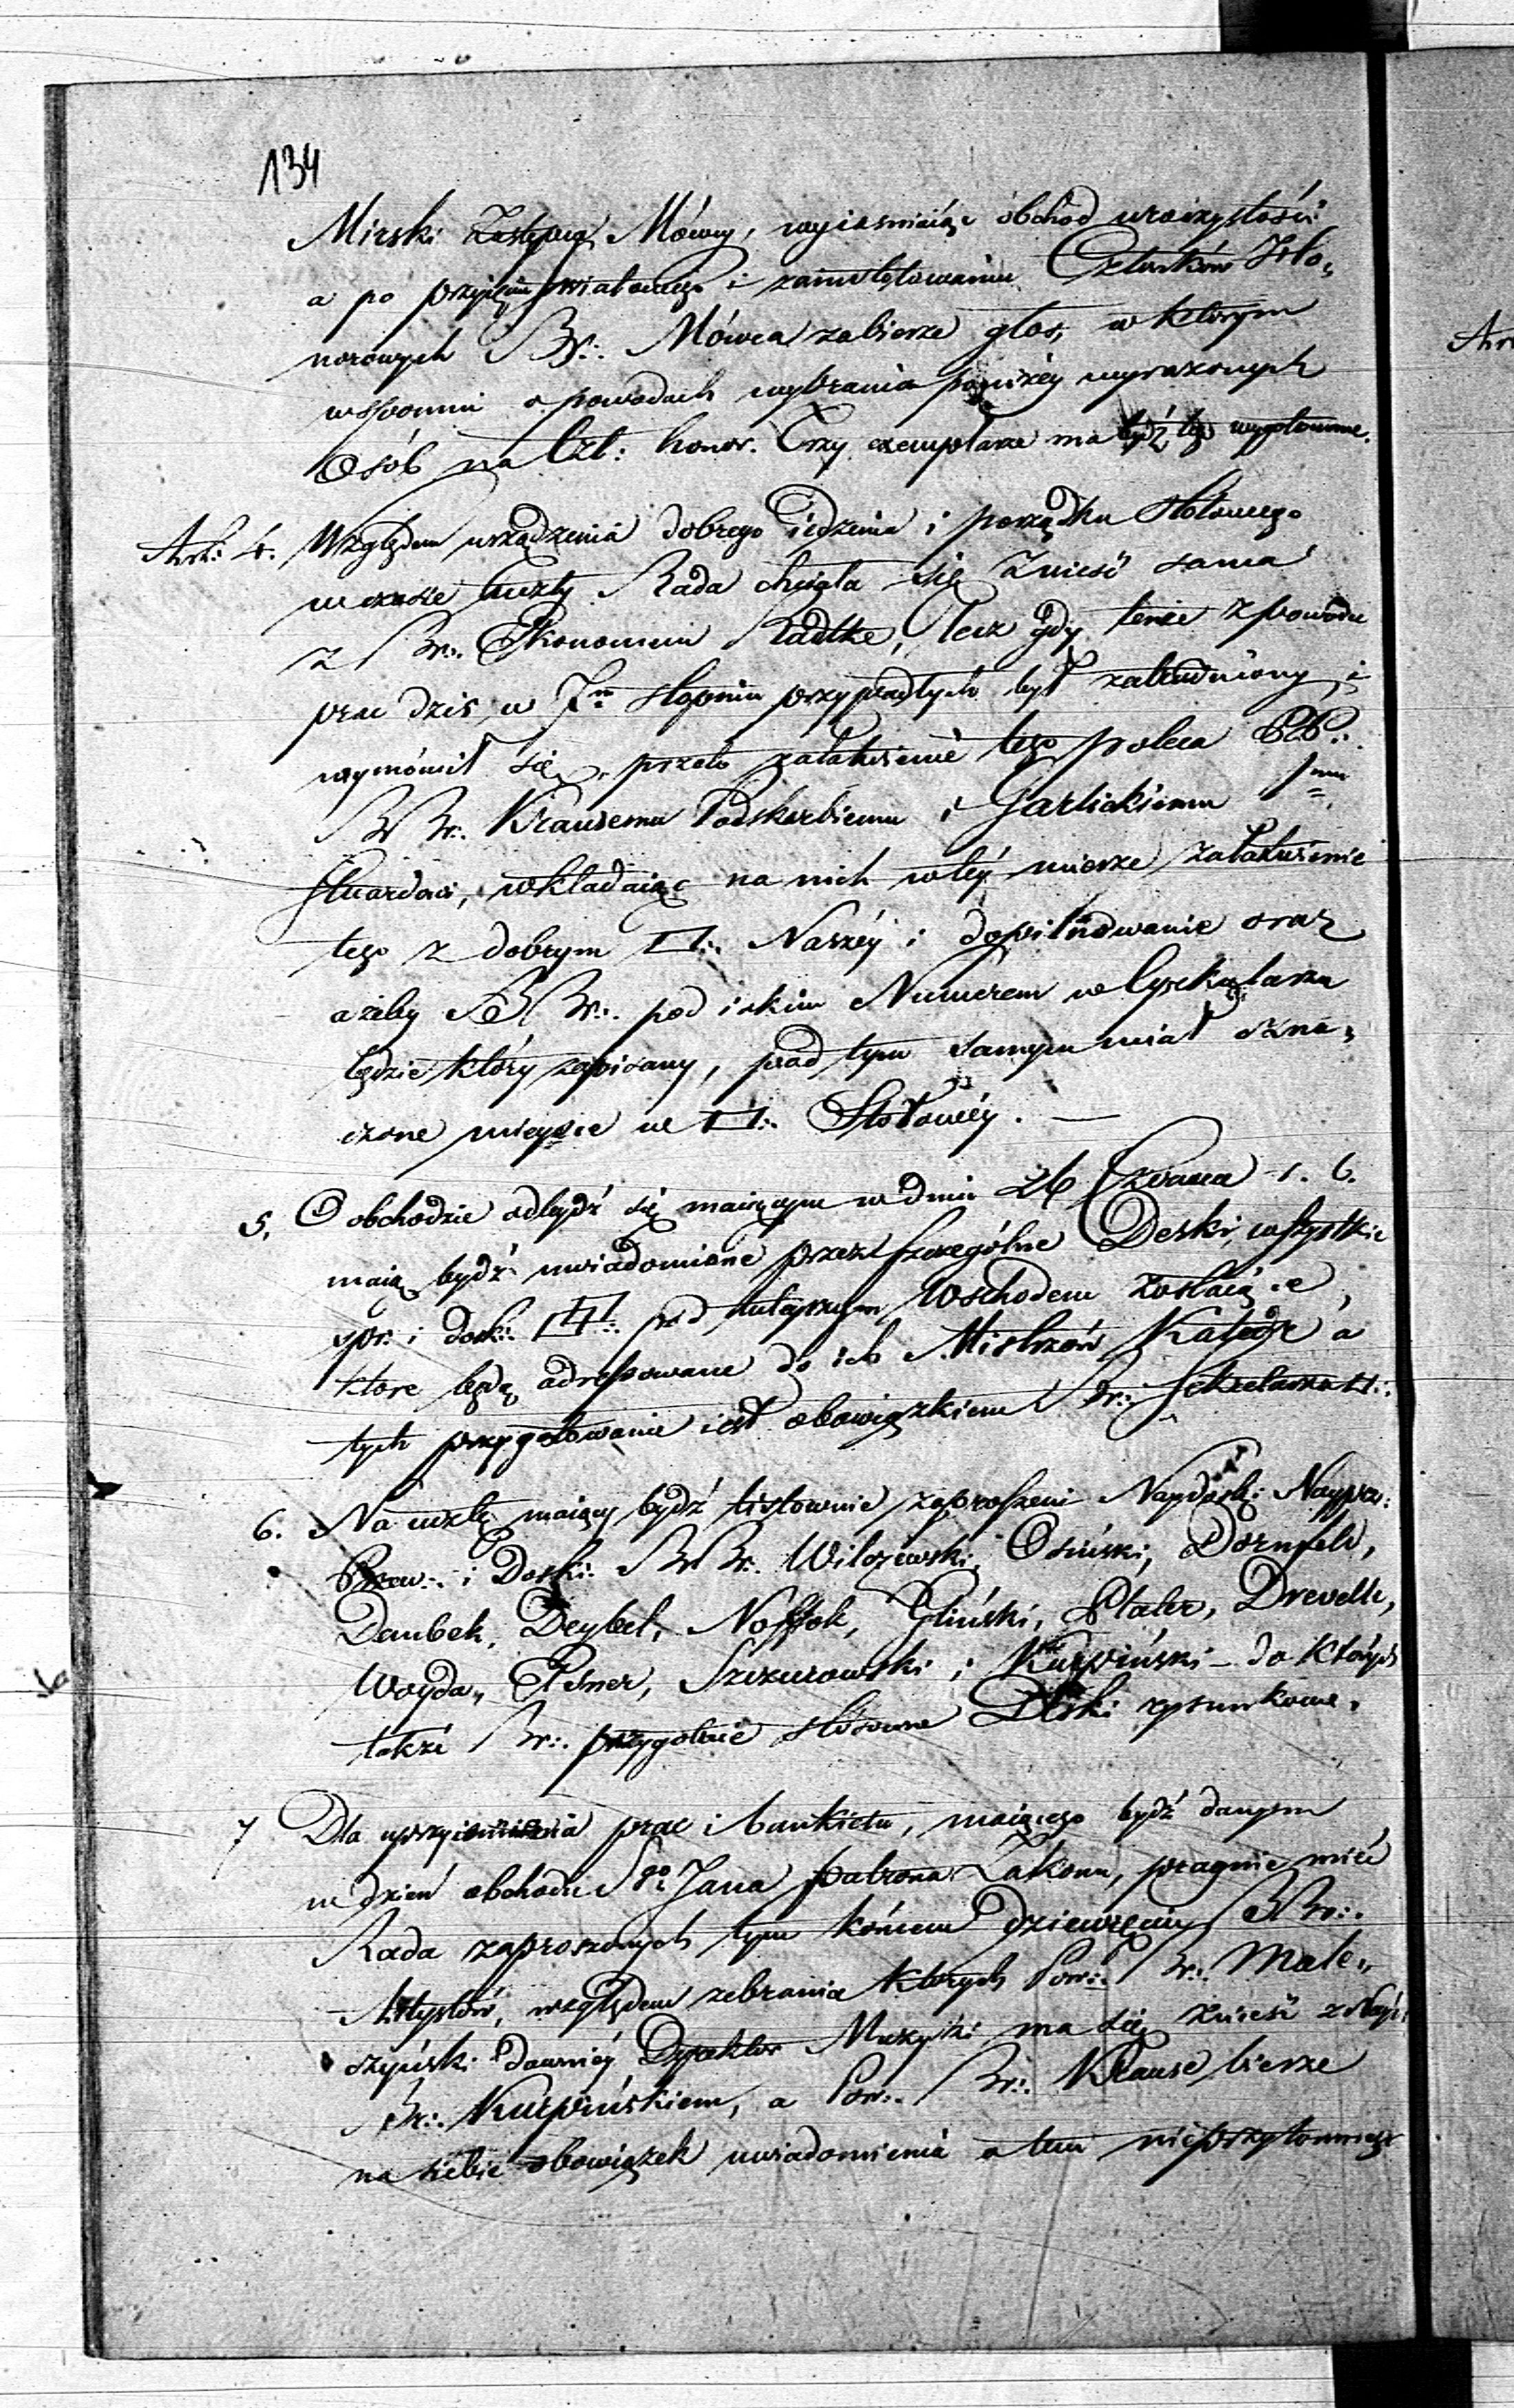 134
Mirski Zastępca Mówcy, wyiaśniaiąc obchód uroczystości
a po przyięciu światowego i zainstalowaniu Członków Ho„
norowych Br∴ Mówca zabierze głos, w którym
wspomni o powodach wybrania poniżéy wyrażonych
Osób na Czł: honor. Trzy exemplarze ma bydź tego wygotowane.
Art: 4. Względem urządzenia dobrego iedzenia i porządku stołowego
w czasie uczty Rada chciała się znieść sama
z Br∴ Ekonomem Radtke, lecz gdy tenże z powodu
prac dziś w 7m stopniu przypadłych był zatrudniony i
wymówił się, przeto załatwienie tego poleca
BBr∴ Krausemu Podskarbiemu i Garlickiemu
Stuardowi, wkładaiąc na nich w téy mierze załatwienie
tego z dobrym □∴ Naszéy i dopilnowanie oraz
ażeby BBr∴ pod iakim Numerem w Cyrkularzu
będzie który zapisany, pod tym samym miał ozna„
czone mieysce w □∴ Stołowéy. —
5. O obchodzie odbydź się maiącym w dniu 26 Czerwca r. b.
maią bydź uwiadomione przez szczególne Deski, wszystkie
spr: i dosk: □□∴ pod tuteyszym Wschodem zostaiące,
które będą adressowane do ich Mistrzów Katedr a
tych przygotowanie iest obowiązkiem Br∴ Sekretarza □∴
6. Na ucztę maiący bydź listownie zaproszeni Naydosk: Nayprz:
Przew∴ i Dosk: BBr∴ Wilczewski, Osiński, Dornfeld,
Daubek, Deybel, Noffok, Gliński, Plater, Drevelle,
Woyda, Elsner, Szczurowski i Kurpiński – do których
także Br∴ przygotuie stósowne Deski rysunkowe.
7 Dla uprzyiemnienia prac i bankietu, maiącego bydź danym
w dzień obchodu Sgo Jana patrona Zakonu, pragnie mieć
Rada zaproszonych tym końcem dziewięciu BBr∴
Artystów, względem zebrania których Pow∴ Br∴ Male„
czyński dawniéy Dyrektor Muzyki ma się znieść z Nayd:
Br∴ Kurpińskiem, a Pow∴ Br∴ Krause bierze
na siebie obowiązek uwiadomienia o tem nieprzytomnego